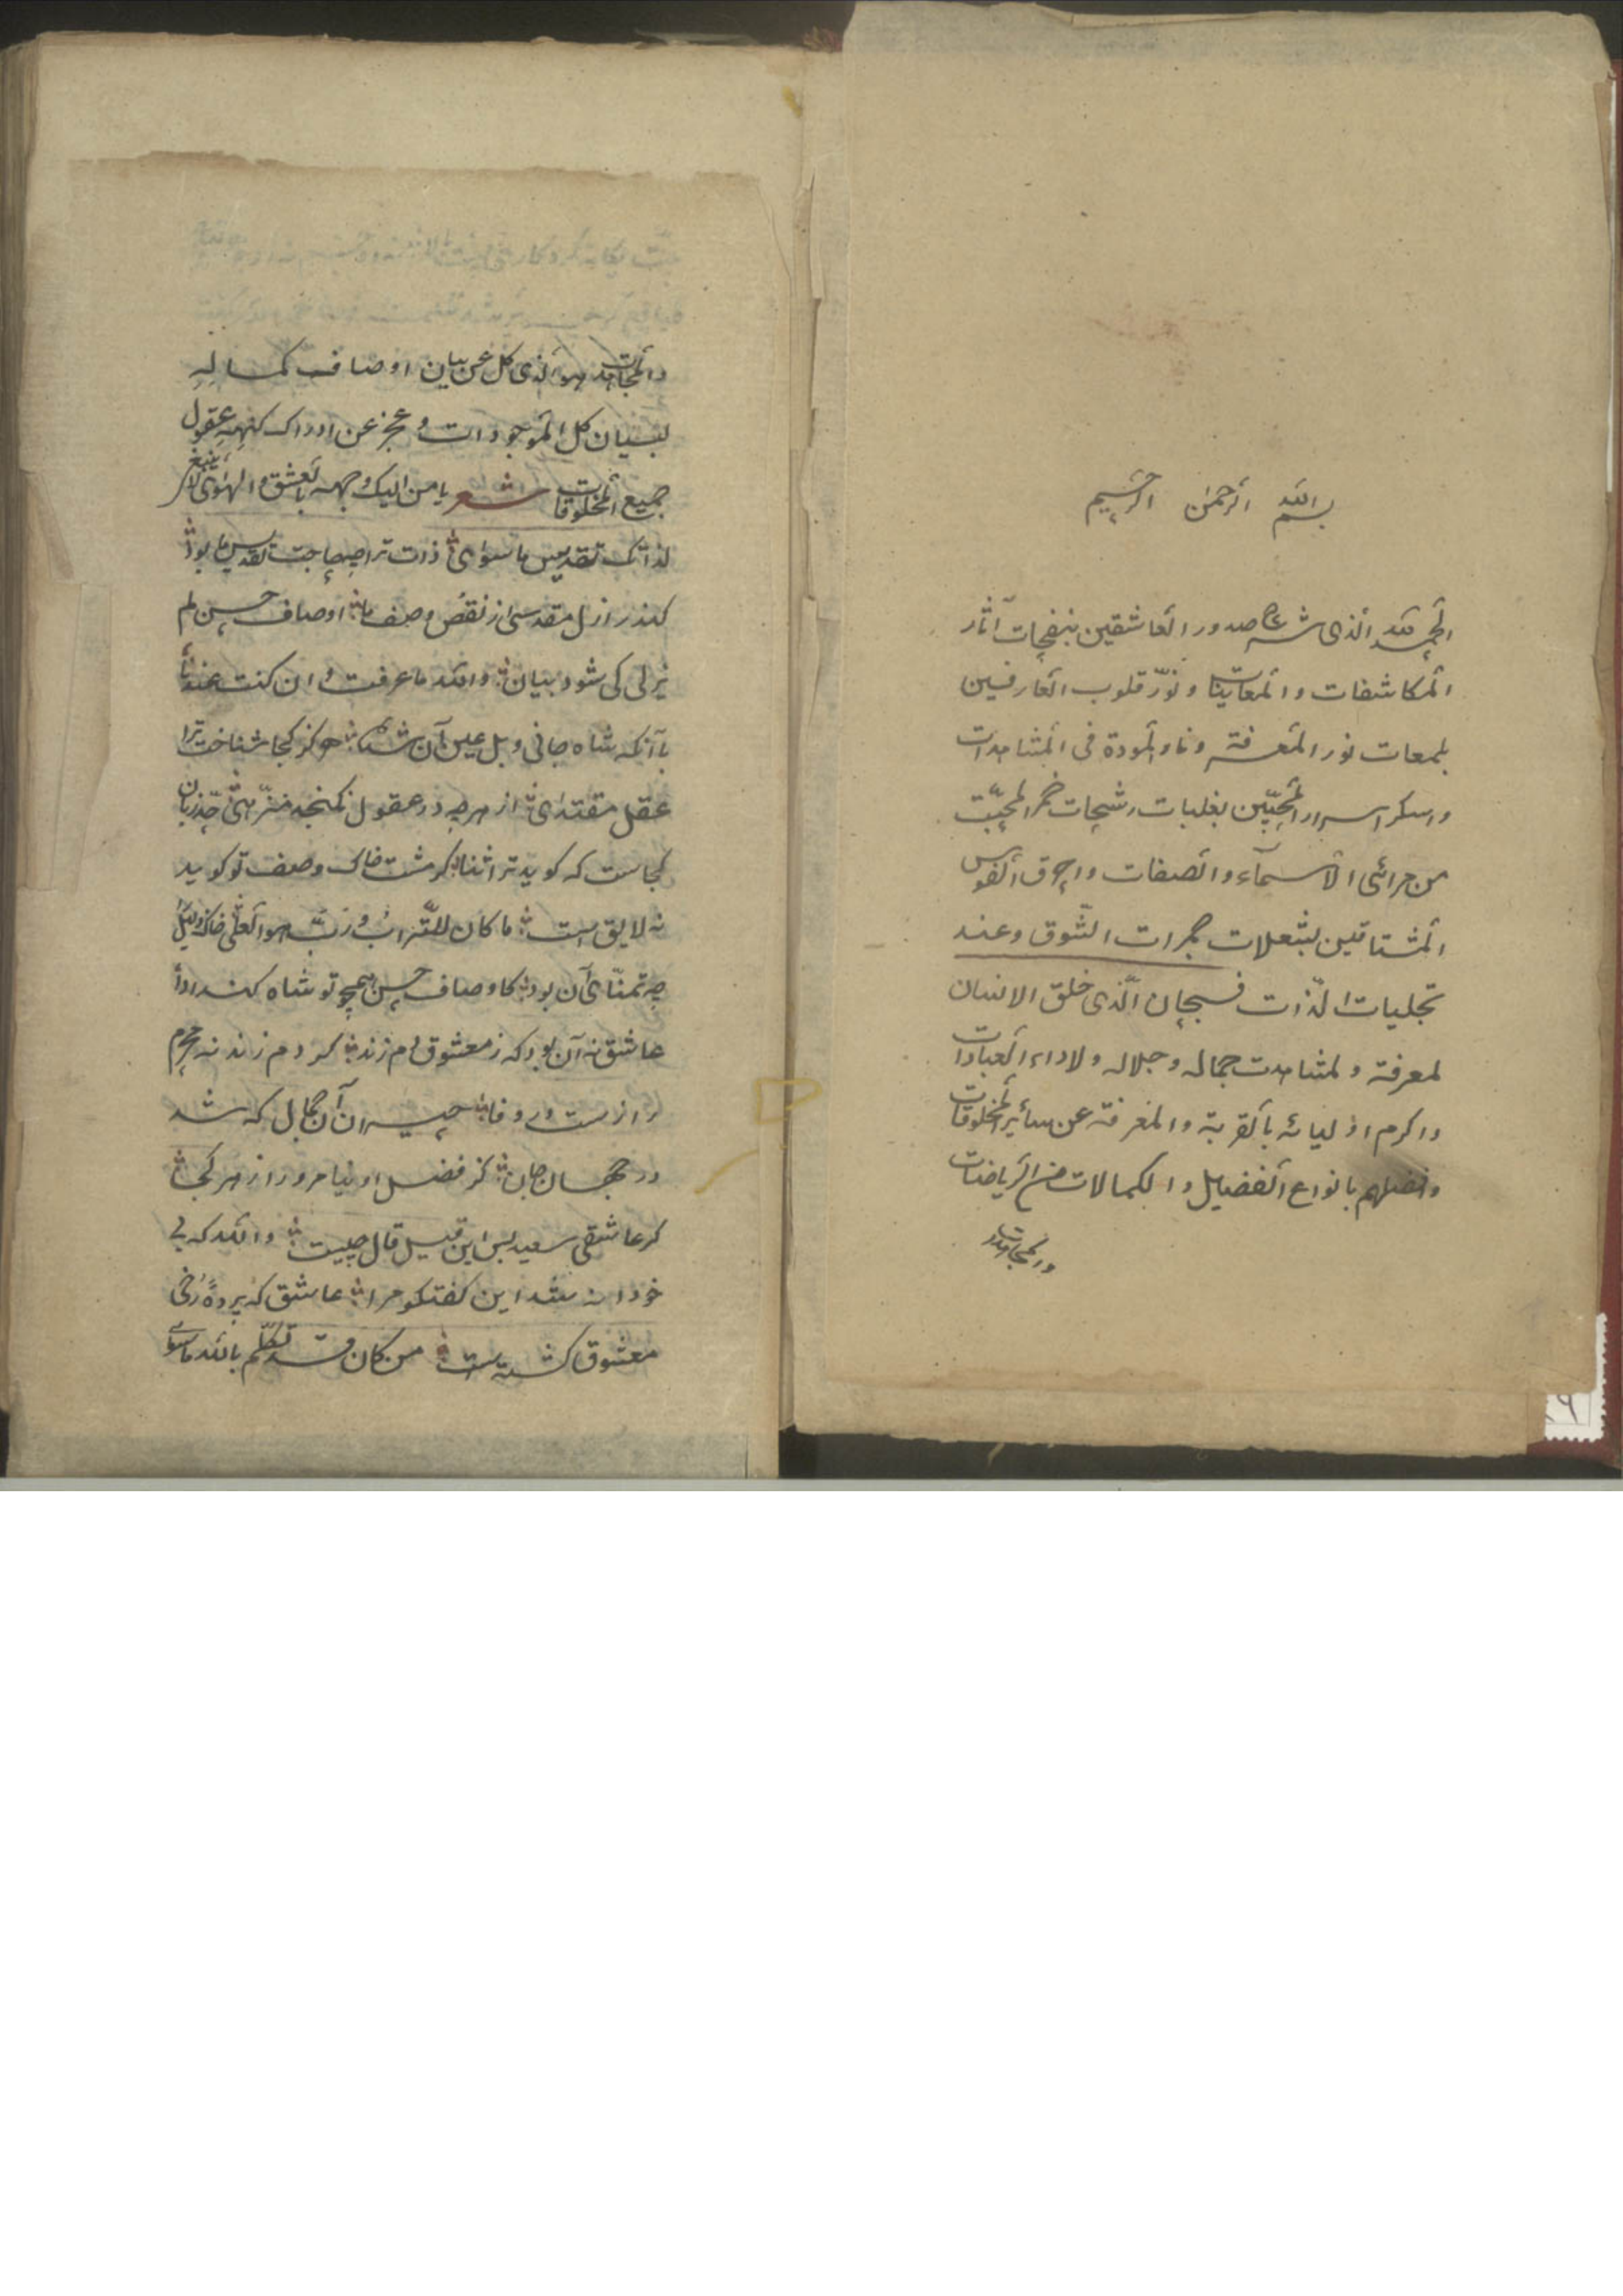 بسم الله الرحمن الرحیم
الحمد لله الذی شرح صدور العاشقین بنفحات آثار
المکاشفات والمعاینات ونوّر قلوب العارفین
بلمعات نور المعرفة ونار المودة فی المشاهدات
واسکر اسرار المحبّین بغلبات رشحات خمر المحبّت
من مرائی الاسمآء والصفات واحرق النفوس
المشتاقین بشعلات جمرات الشوق وعند
تجلیات الذّات فسبحان الّذی خلق الانسان
لمعرفته ولمشاهدت جماله وجلاله ولاداء العبادات
واکرم اولیائه بالقربة والمعرفة عن سائر المخلوقات
وفضلهم بانواع الفضایل والکمالات من الریاضات
والمجاهدت
والمجاهدات هو الذی کل عن بیان اوصاف کماله
لسان کل الموجودات وعجز عن ادراک کنهه عقول
جمیع المخلوقات شعر یا من الیک وجهه بالعشق والهوی لا ینبغی
لذاتک تقدیس ما سوای ذات ترا چه حاجت تقدیس ما بود
کندر ازل مقدسی از نقص وصف ما اوصاف حسن لم
یزلی کی شود بیان والله ما عرفت وان کنت عندنا
باآنکه شاه جانی وبل عین آن شدی هرکز کجا شناخت ترا
عقل مقتدای از هرچه در عقول نکنجد منزّهی حد زبان
کجاست که کوید ترا ثنا کر مشت خاک وصف تو کوید
نه لایق است ما کان للتّراب وربّ هو العلی خاک ذلیل
چه تمنّای آن بود کاوصاف حسن همچو تو شاه کند ادا
عاشق نه آن بود که ز معشوق دم زند کر دم زند نه محرم
رازست ور وفا حیران آن جمال که شد
در جهان جان کز فضل او نیامرورا از هر کجا
کر عاشقی سعید بس این قیل قال چیست والله که بی
خودانه شد این کفتکو مرا عاشق که پردهٔ رخ
معشوق کشته است من کان قد تکلّم بالله ما سوی